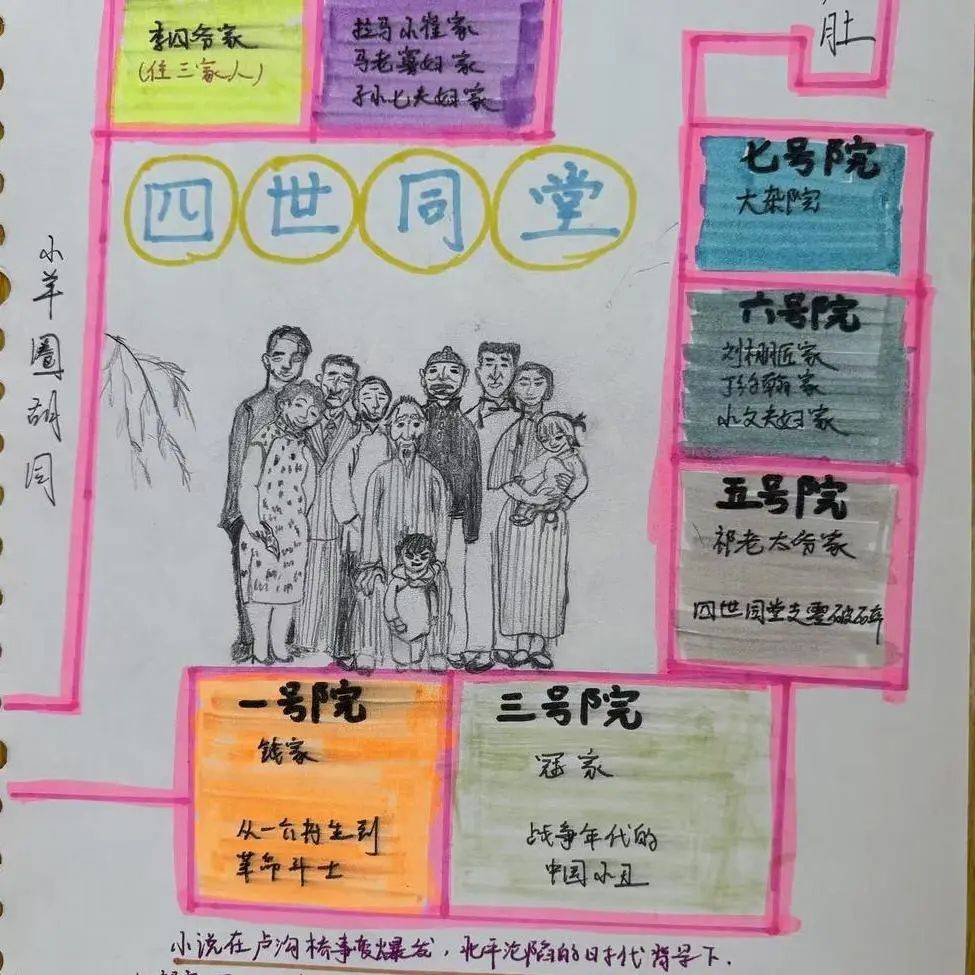 李四爷家
(住三家人)
拉马小崔家
马老寡妇家
孙小七夫妇家
肚
四世同堂
小羊圈胡同
七号院
大杂院
六号院
刘棚匠家
丁约翰家
小文夫妇家
五号院
祁老太爷家
四世同堂支零破碎
一号院
钱家
从一介书生到
革命斗士
三号院
冠家
战争年代的
中国小丑
小说在卢沟桥事变爆发，北平沦陷的时代背景下.